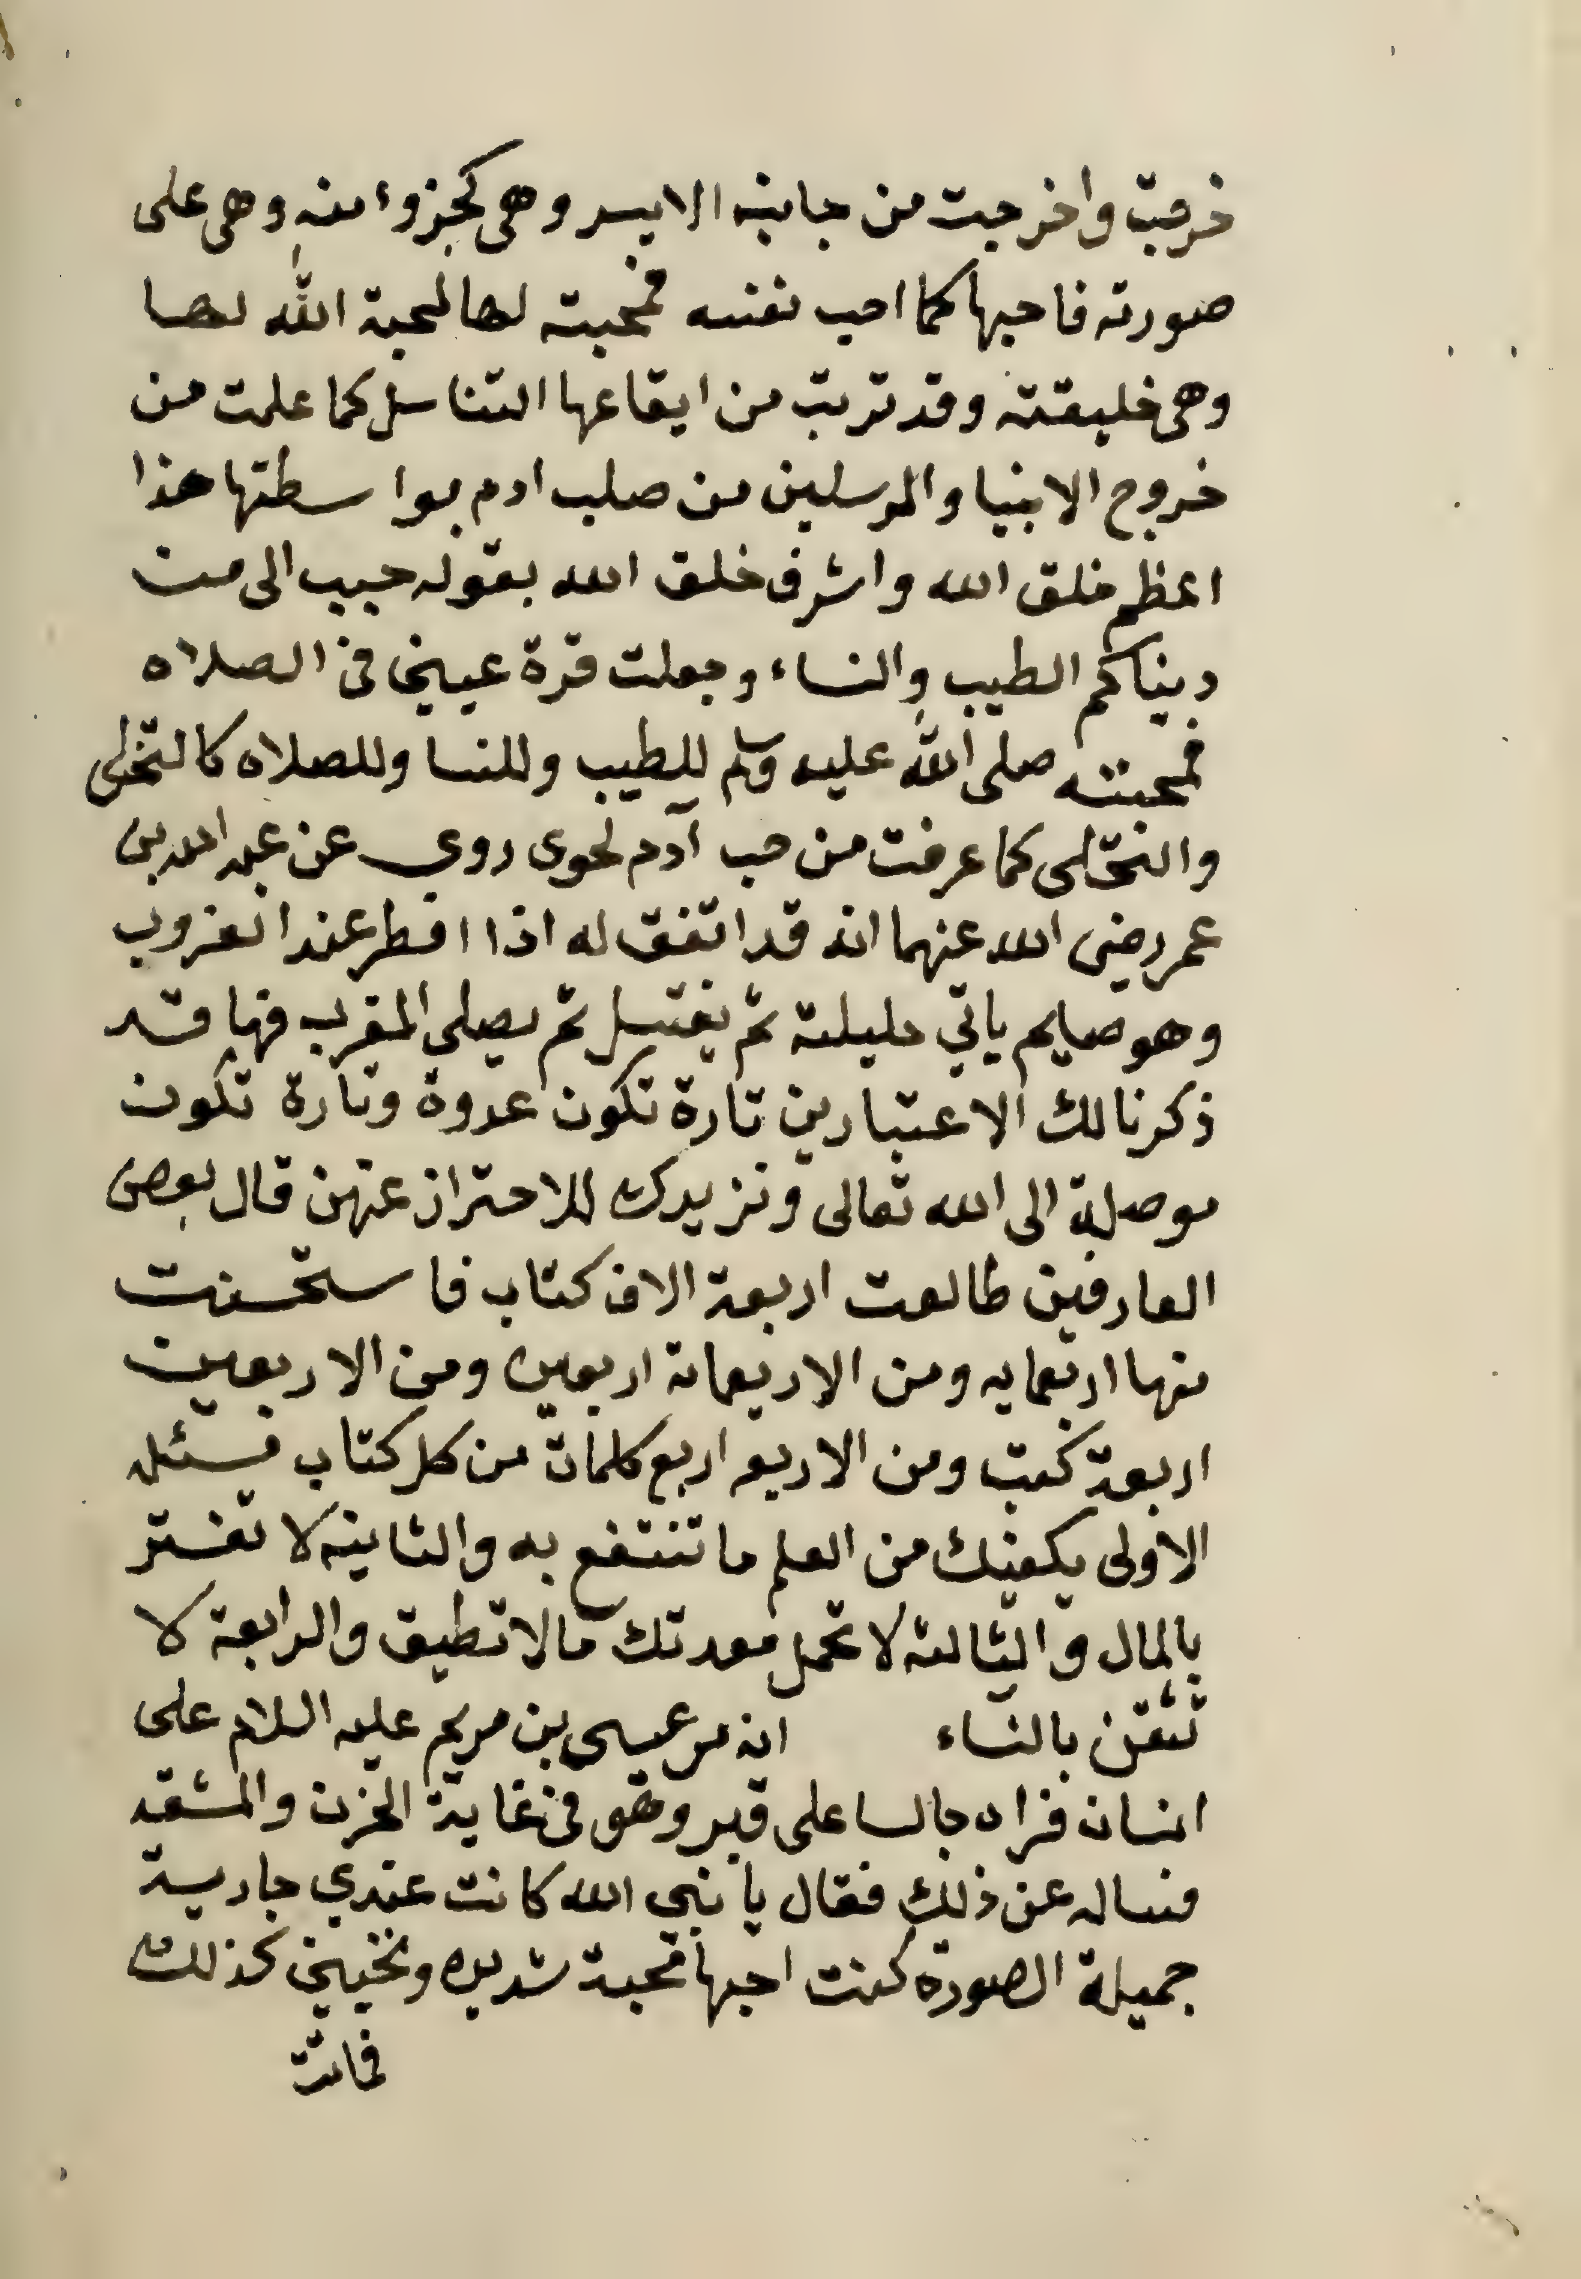 خرقت واخرجت من جانبه الايسر وهى كجزوء منه وهى على
صورته فاحبها كما احب نفسه فمحبته لها لمحبة الله لها
وهى خليقته وقد ترتب من ايقاعها التناسل كما علمت من
خروج الانبيا والمرسلين من صلب ادم بواسطتها هذا
اعظم خلق الله واشرف خلق الله بقوله حبب الى من
دنياكم الطيب والنساء وجعلت قرة عيني في الصلاه
فمحبته صلى الله عليه وسلم للطيب وللنسا وللصلاه كالتخلى
والتحلى كما عرفت من حب آدم لحوى روي عن عبد الله بن
عمر رضى الله عنهما انه قد اتفق له اذا افطر عند الغروب
وهو صايم ياتي حليلته ثم يغتسل ثم يصلي المغرب فها قد
ذكرنا لك الاعتبارين تارة تكون عدوة وتارة تكون
موصلة الى الله تعالى ونزيدك للاحتراز عنهن قال بعض
العارفين طالعت اربعة الاف كتاب فاستحسنت
منها اربعمايه ومن الاربعماية اربعين ومن الاربعين
اربعة كتب ومن الاربعه اربع كلمات من كل كتاب فسئله
الاولى يكفيك من العلم ما تنتفع به والثانيه لا تغتر
بالمال والثالثه لا تحمل معدتك مالا تطيق والرابعة لا
تثقن بالنساء انه مر عيسى بن مريم عليه السلام على
انسان فراه جالسا على قبر وهو في غاية الحزن والمشقه
فساله عن ذلك فقال يا نبي الله كانت عندي جارية
جميلة الصورة كنت احبها محبة شديده وتحبني كذلك
فماتت